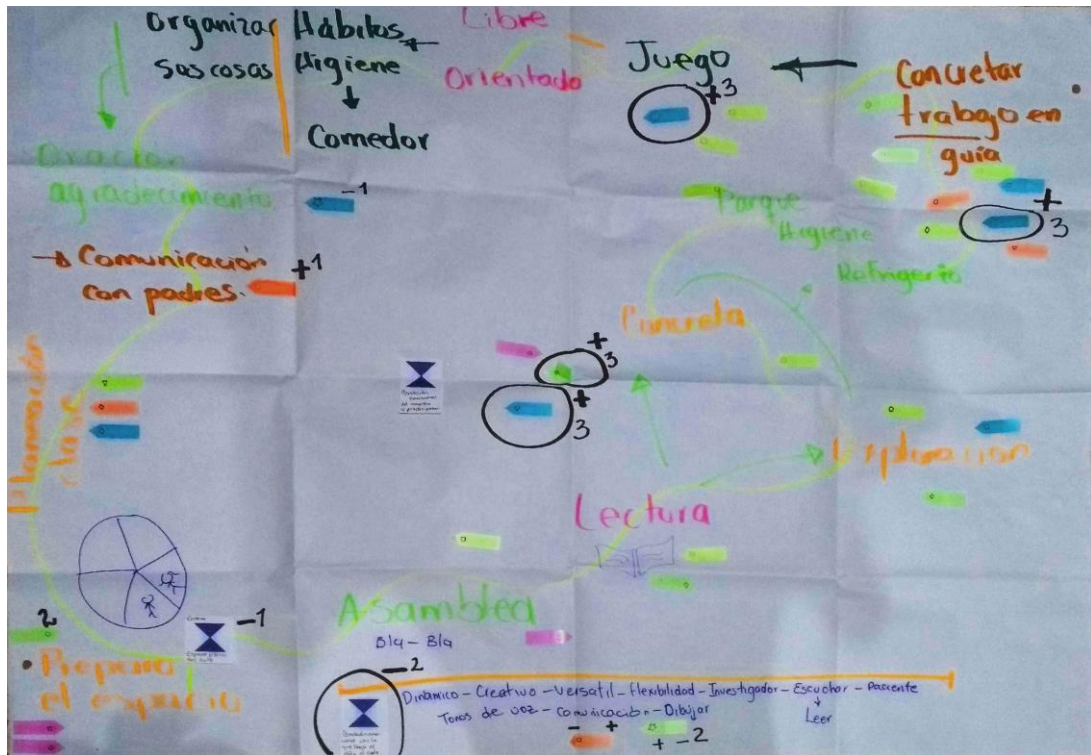 organizar
sus cosas
Hábitos
Higiene
Comedor
Libre
Orientado
Juego
+3
Concretar
trabajo en
guia
+
3
Oración
agradecimiento
-1
Parque
Higiene
Refrigerio
Comunicación
con padres.
+1
Concreta
+
3
+
3
Planeación
clase
Exploración
Lectura
Asamblea
Bla - Bla
2
-1
Prepara
el espacio
-2
Dinámico - Creativo - Versatil - Flexibilidad - Investigador - Escuchar - Paciente
Tonos de voz - Comunicación - Dibujar
Leer
- +
+ -2